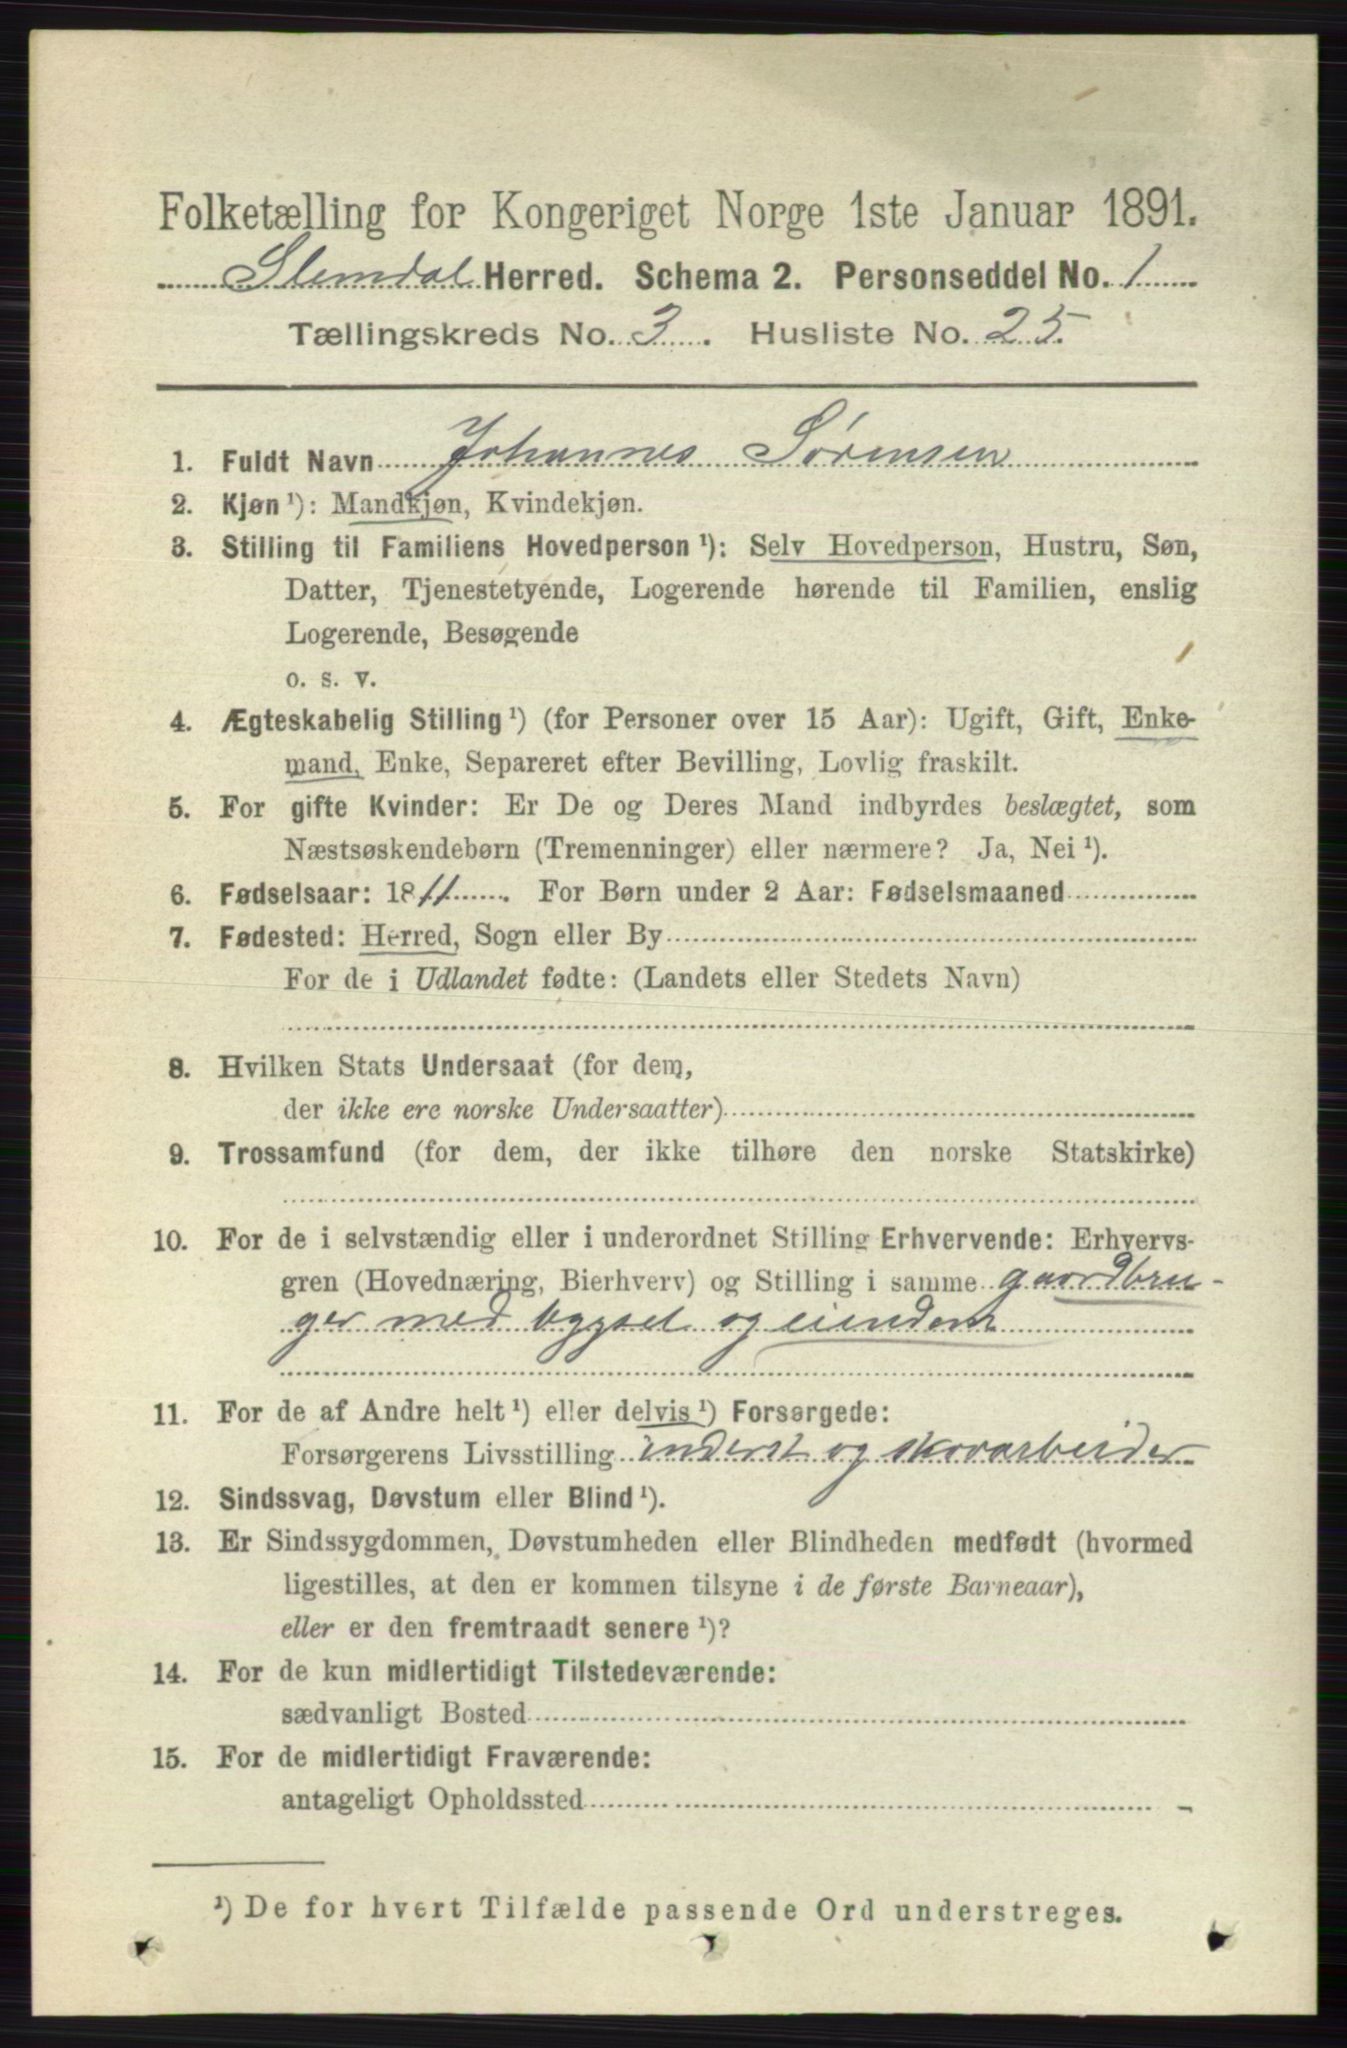 Folketælling for Kongeriget Norge 1ste Januar 1891.
Slemdal Herred. Schema 2. Personseddel No. 1
Tællingskreds No. 3. Husliste No. 25.
1. Fuldt Navn Johannes Sørensen
2. Kjøn ¹): Mandkjøn, Kvindekjøn.
3. Stilling til Familiens Hovedperson ¹): Selv Hovedperson, Hustru, Søn,
Datter, Tjenestetyende, Logerende hørende til Familien, enslig
Logerende, Besøgende
o. s. v.
4. Ægteskabelig Stilling ¹) (for Personer over 15 Aar): Ugift, Gift, Enke-
mand, Enke, Separeret efter Bevilling, Lovlig fraskilt.
5. For gifte Kvinder: Er De og Deres Mand indbyrdes beslægtet, som
Næstsøskendebørn (Tremenninger) eller nærmere? Ja, Nei ¹).
6. Fødselsaar: 1811. For Børn under 2 Aar: Fødselsmaaned
7. Fødested: Herred, Sogn eller By
For de i Udlandet fødte: (Landets eller Stedets Navn)
8. Hvilken Stats Undersaat (for dem,
der ikke ere norske Undersaatter)
9. Trossamfund (for dem, der ikke tilhøre den norske Statskirke)
10. For de i selvstændig eller i underordnet Stilling Erhvervende: Erhvervs-
gren (Hovednæring, Bierhverv) og Stilling i samme gaardbru-
ger med bygsel og eiendom
11. For de af Andre helt ¹) eller delvis ¹) Forsørgede:
Forsørgerens Livsstilling inderst og skovarbeider
12. Sindssvag, Døvstum eller Blind ¹).
13. Er Sindssygdommen, Døvstumheden eller Blindheden medfødt (hvormed
ligestilles, at den er kommen tilsyne i de første Barneaar),
eller er den fremtraadt senere ¹)?
14. For de kun midlertidigt Tilstedeværende:
sædvanligt Bosted
15. For de midlertidigt Fraværende:
antageligt Opholdssted
¹) De for hvert Tilfælde passende Ord understreges.